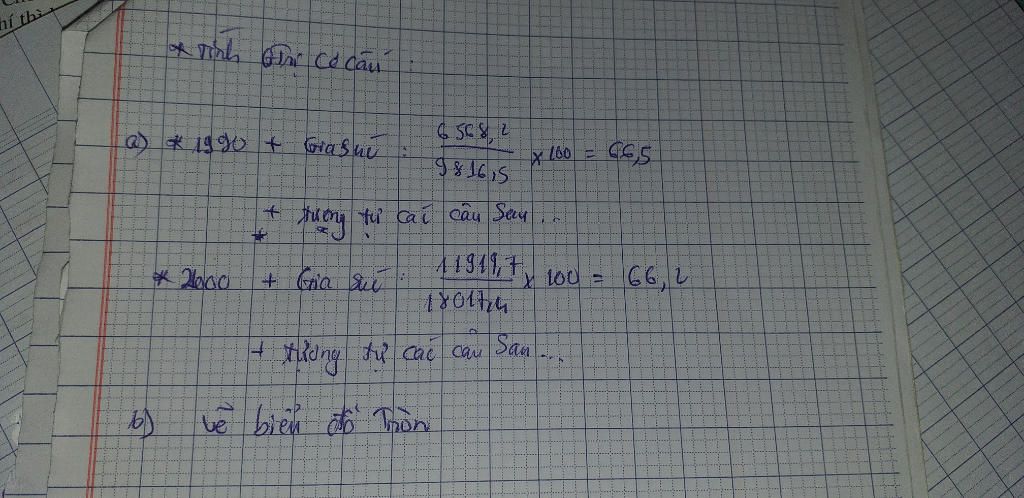 * Tính GTrị Cơ cấu :
a) * 1990 + Gia súc : 6568,2 / 9816,5 x 100 = 66,5
+ tương tự các câu sau ...
* 2000 + Gia súc : 11919,7 / 18017,4 x 100 = 66,2
+ tương tự các câu sau ...
b) vẽ biển đồ Tròn